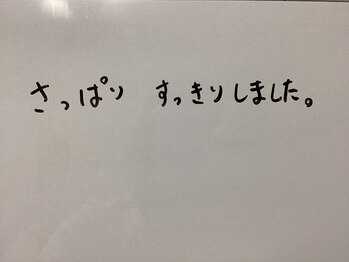 さっぱり すっきりしました。